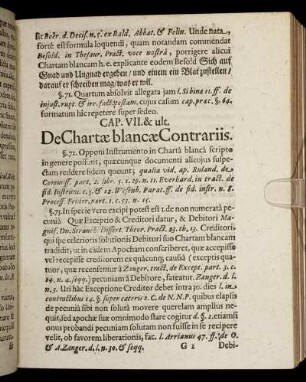 lit Bohr. d. Decis. n. 5. ex Bald. Abbat. & Felin. Unde nata
fortè est formula loquendi, quam notandam commendat
Besold. in Thesaur. Pract. voce nostrâ, porrigere alicui
Chartam blancam h. e. explicante eodem Besold Sich auf
Gnad und Ungnad ergeben / und einem ein Blat zustellen /
darauf er schreiben mag / was er will.
§. 71. Quatum absolvit allegata jam l. Si bina 11. ff. de
injust. rupt. & irr. fact. testam. cujus casum cap. præc. §. 64.
formatum hic repetere super sedeo.
CAP. VII. & ult.
De Chartæ blancæ Contrariis.
§. 72. Opponi Instrumento in Chartâ blancâ scripto
in genere possunt, quæcunque documenti alicujus suspe-
ctam reddere fidem queunt; qualia vid. ap. Ruland. de
Commiss. part. 2. lib. 5. c. 19. n. 11. Everhard. in tract. de
fid. Instrum.
Process. Fori
§. 73. In specie vero excipi potest est. de non numeratâ pe-
cuniâ Quæ Exceptio & Creditori datur, & Debitori Ma-
gnif. Dn. Strauch. Dissert. Theor. Pract. 23. th. 13. Creditori,
qui spe celerioris solutionis Debitori suo Chartam blancam
tradidit, ut in eâdem Apocham conscriberet, quæ accepisse
vel recepisse creditorem ex quâcunq; causâ (exceptis qua-
tuor, quæ recensentur à Zanger. tract. de Except. part. 3. c.
14. n. 4. seqq.) pecuniam à Debitore, fateatur. Zanger. d. l.
n. 3. Uri hâc Exceptione Creditor debet intra 30. dies l. in
contractibus 14. §. super cæteris 2. C. de N. N. P. quibus elapsis
de pecuniâ sibi non solutâ movere querelam ampliùs ne-
quit, sed apochæ suæ omnimodò stare cogitur d. §. 2. etiamsi
onus probandi pecuniam solutam non fuisse in se recipere
velit, ob favorem liberationis, fac. l. Arrianus 47. ff. de O.
& A. Zanger. d. l. n. 30. & seqq.
G 2 Debi-